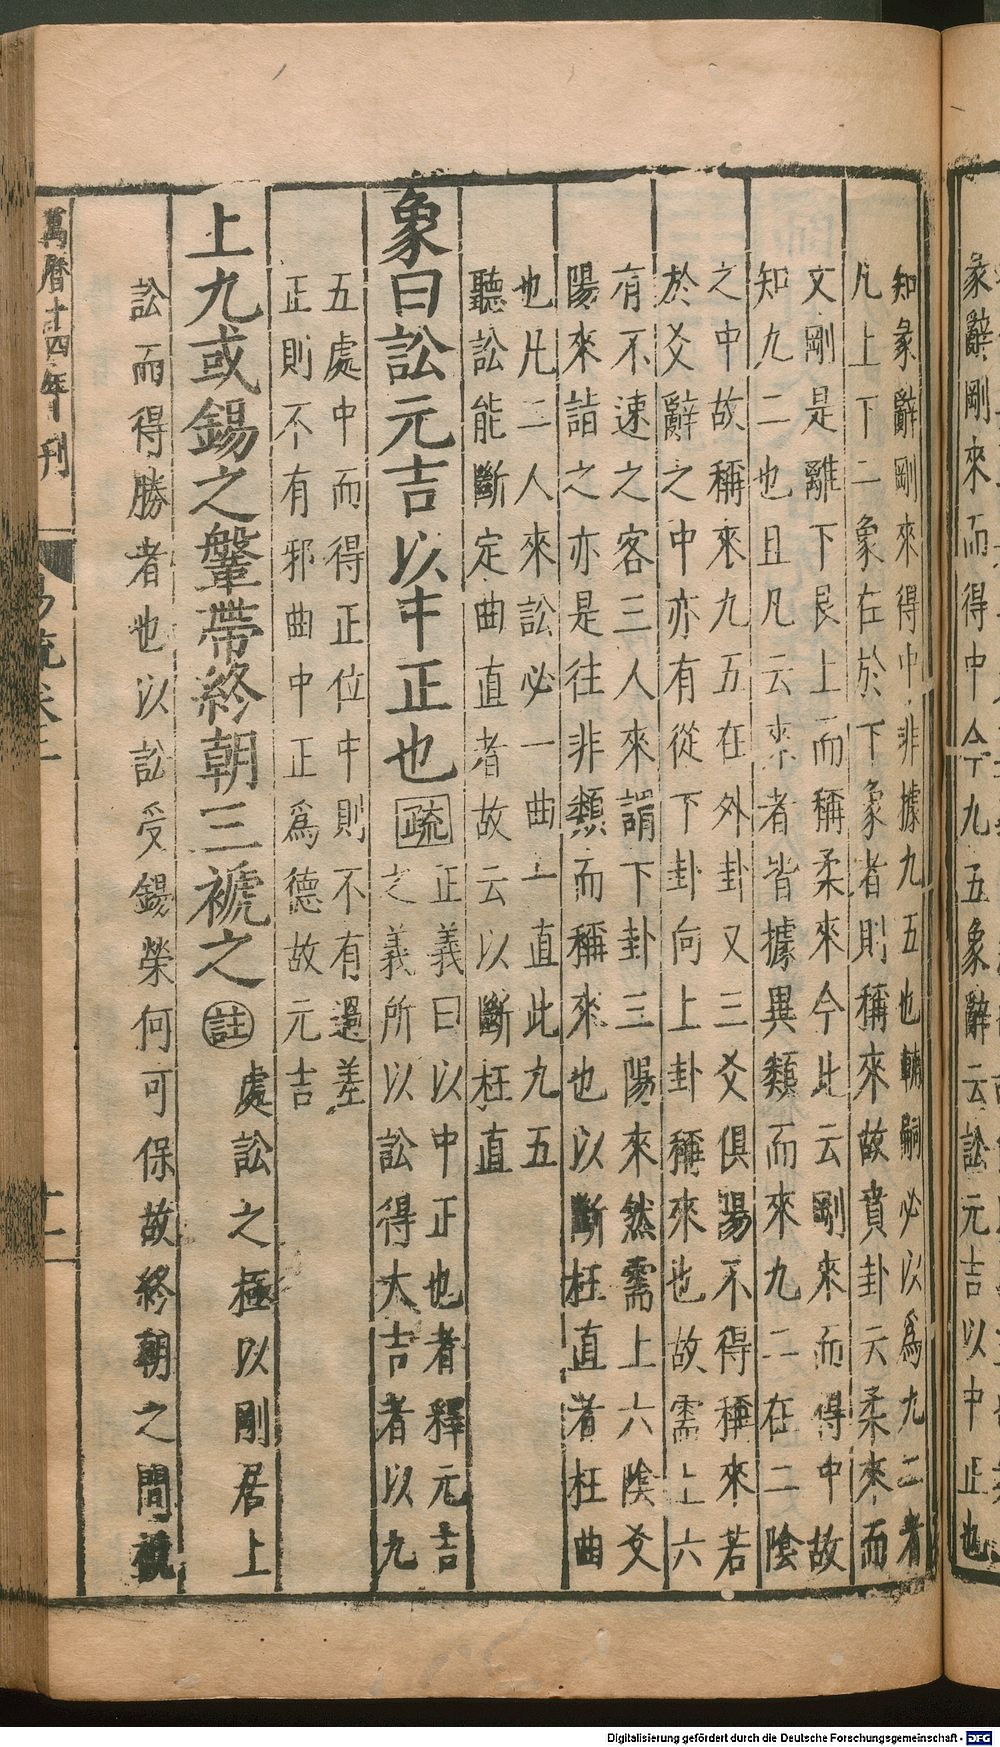 彖辭剛來而得中今九五象辭云訟元吉以中正也
知彖辭剛來得中非據九五也輔嗣必以爲九二者
凡上下二象在於下象者則稱來故賁卦云柔來而
文剛是離下艮上而稱柔來今此云剛來而得中故
知九二也且凡云來者皆據異類而來九二在二陰
之中故稱來九五在外卦又三爻俱陽不得稱來若
於爻辭之中亦有從下卦向上卦稱來也故需上六
有不速之客三人來謂下卦三陽來然需上六陰爻
陽來詣之亦是往非類而稱來也以斷枉直者枉曲
也凡二人來訟必一曲一直此九五
聽訟能斷定曲直者故云以斷枉直
象曰訟元吉以中正也疏
正義曰以中正也者釋元吉
之義所以訟得大吉者以九
五處中而得正位中則不有過差
正則不有邪曲中正爲德故元吉
上九或錫之鞶帶終朝三褫之註
處訟之極以剛居上
訟而得勝者也以訟受錫榮何可保故終朝之間褫
萬曆十四年刊
易疏卷
Digitalisierung gefördert durch die Deutsche Forschungsgemeinschaft - DFG